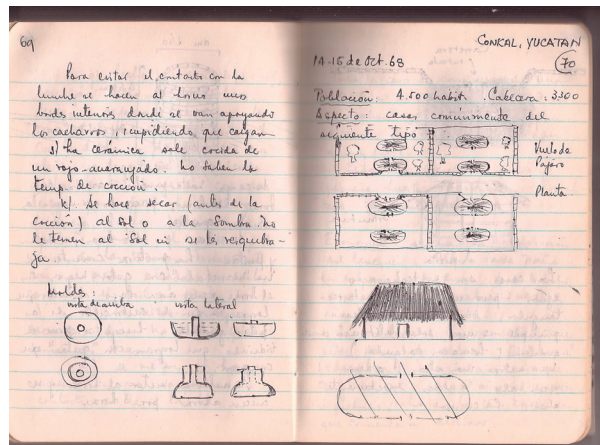 69
Para evitar el contacto con la
lumbre se hacen al horno unos
bordes interiores donde se van apoyando
los cacharros, impidiendo que caigan
j) La cerámica sale cocida de
un rojo-anaranjado. No saben la
temp. de cocción.
k) Se hace secar (antes de la
cocción) al sol o a la sombra. No
le temen al sol ni se les resquebra-
ja
Moldes:
vista de arriba vista lateral
CONKAL, YUCATAN
70
15 de Oct. 68
Población: 4.500 habit. Cabecera: 3300
Aspecto: casas comunmente del
siguiente tipo
Vuelo de
Pajaro
Planta